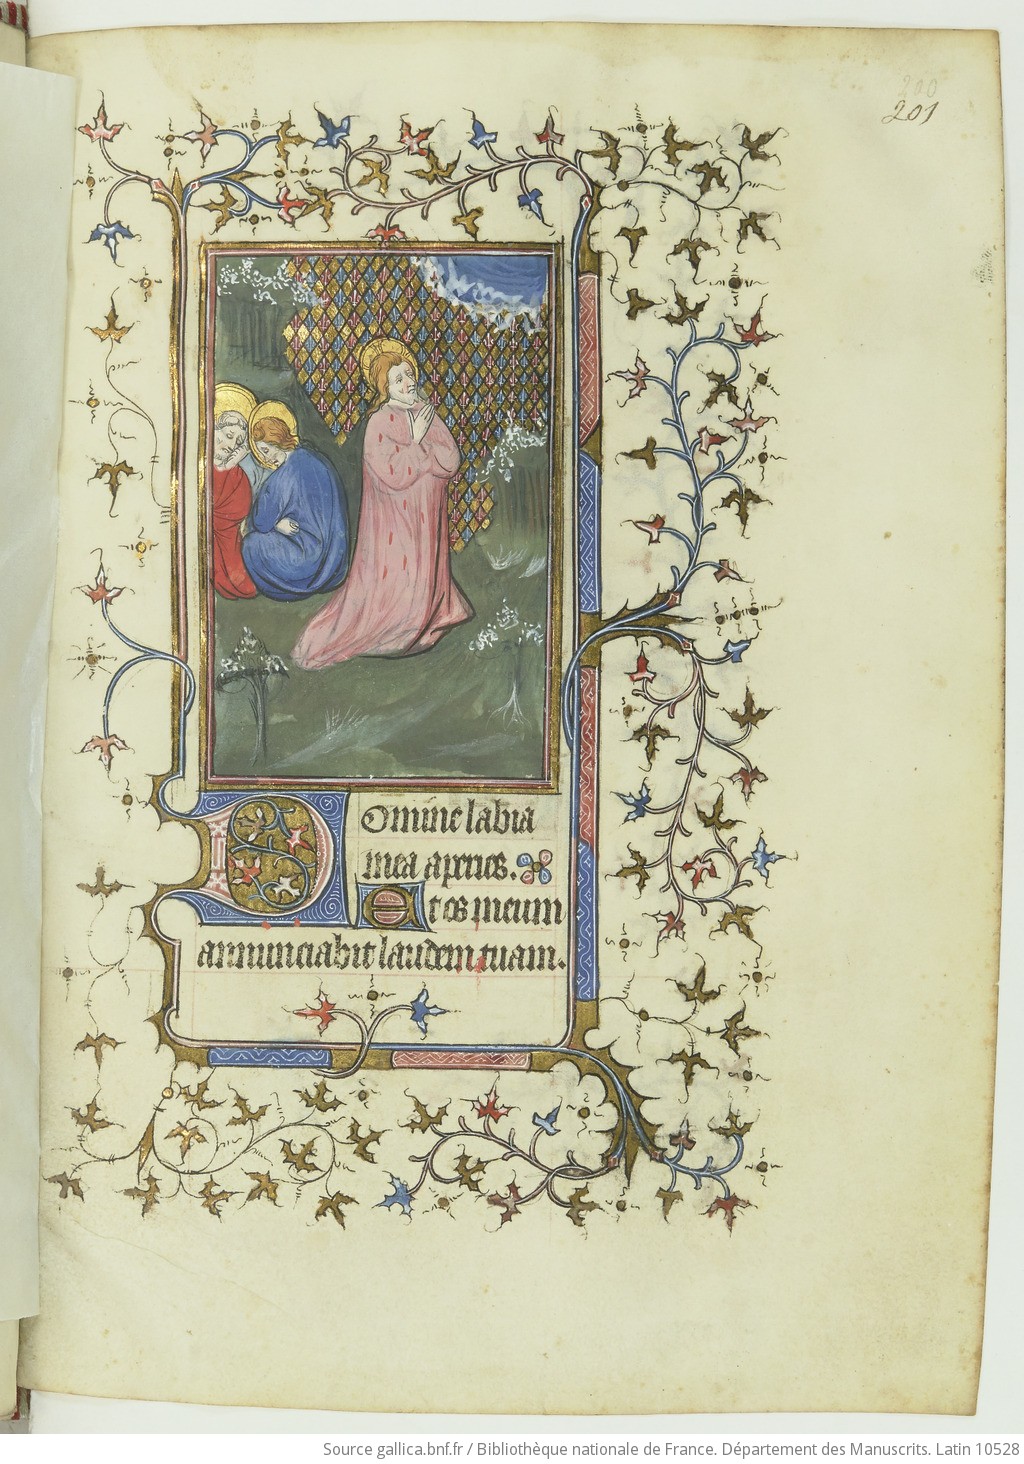 200
201
Domine labia
mea aperies.
Et os meum
annunciabit laudem tuam.
Source gallica.bnf.fr / Bibliothèque nationale de France. Département des Manuscrits. Latin 10528